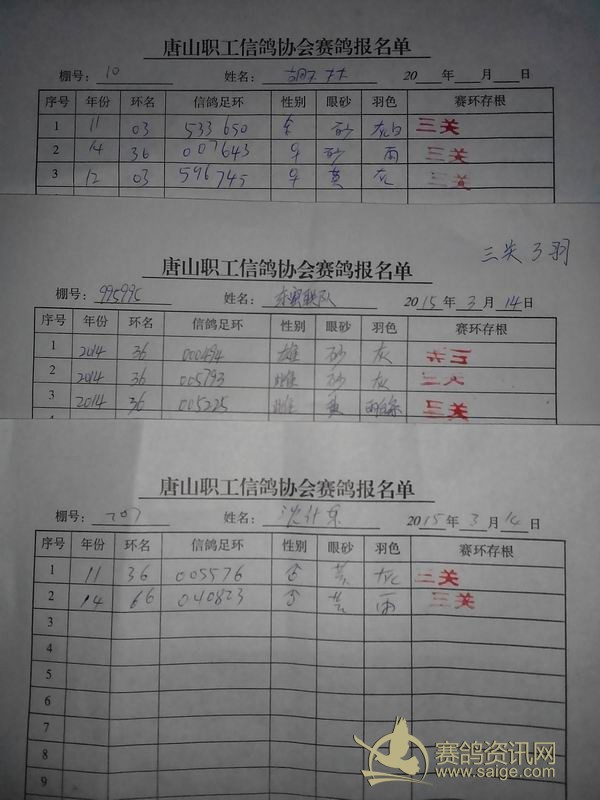 唐山职工信鸽协会赛鸽报名单
棚号： 10 姓名： 胡林 20 年 月 日
序号 年份 环名 信鸽足环 性别 眼砂 羽色 赛环存根
1 11 03 533650 砂 灰白 三关
2 14 36 007643 砂 雨 三关
3 12 03 596745 黄 灰 三关
三关3羽
唐山职工信鸽协会赛鸽报名单
棚号： 995995 姓名： 联队 2015年 3月 14日
序号 年份 环名 信鸽足环 性别 眼砂 羽色 赛环存根
1 2014 36 雄 砂 灰 三关
2 2014 36 005793 雌 砂 灰 三关
3 2014 36 005225 雌 黄 三关
唐山职工信鸽协会赛鸽报名单
棚号： 707 姓名： 沈 2015年 3月 14日
序号 年份 环名 信鸽足环 性别 眼砂 羽色 赛环存根
1 11 36 005576 黄 灰 三关
2 14 66 040823 黄 雨 三关
3
4
5
6
7
8
9
赛鸽资讯网
www.saige.com